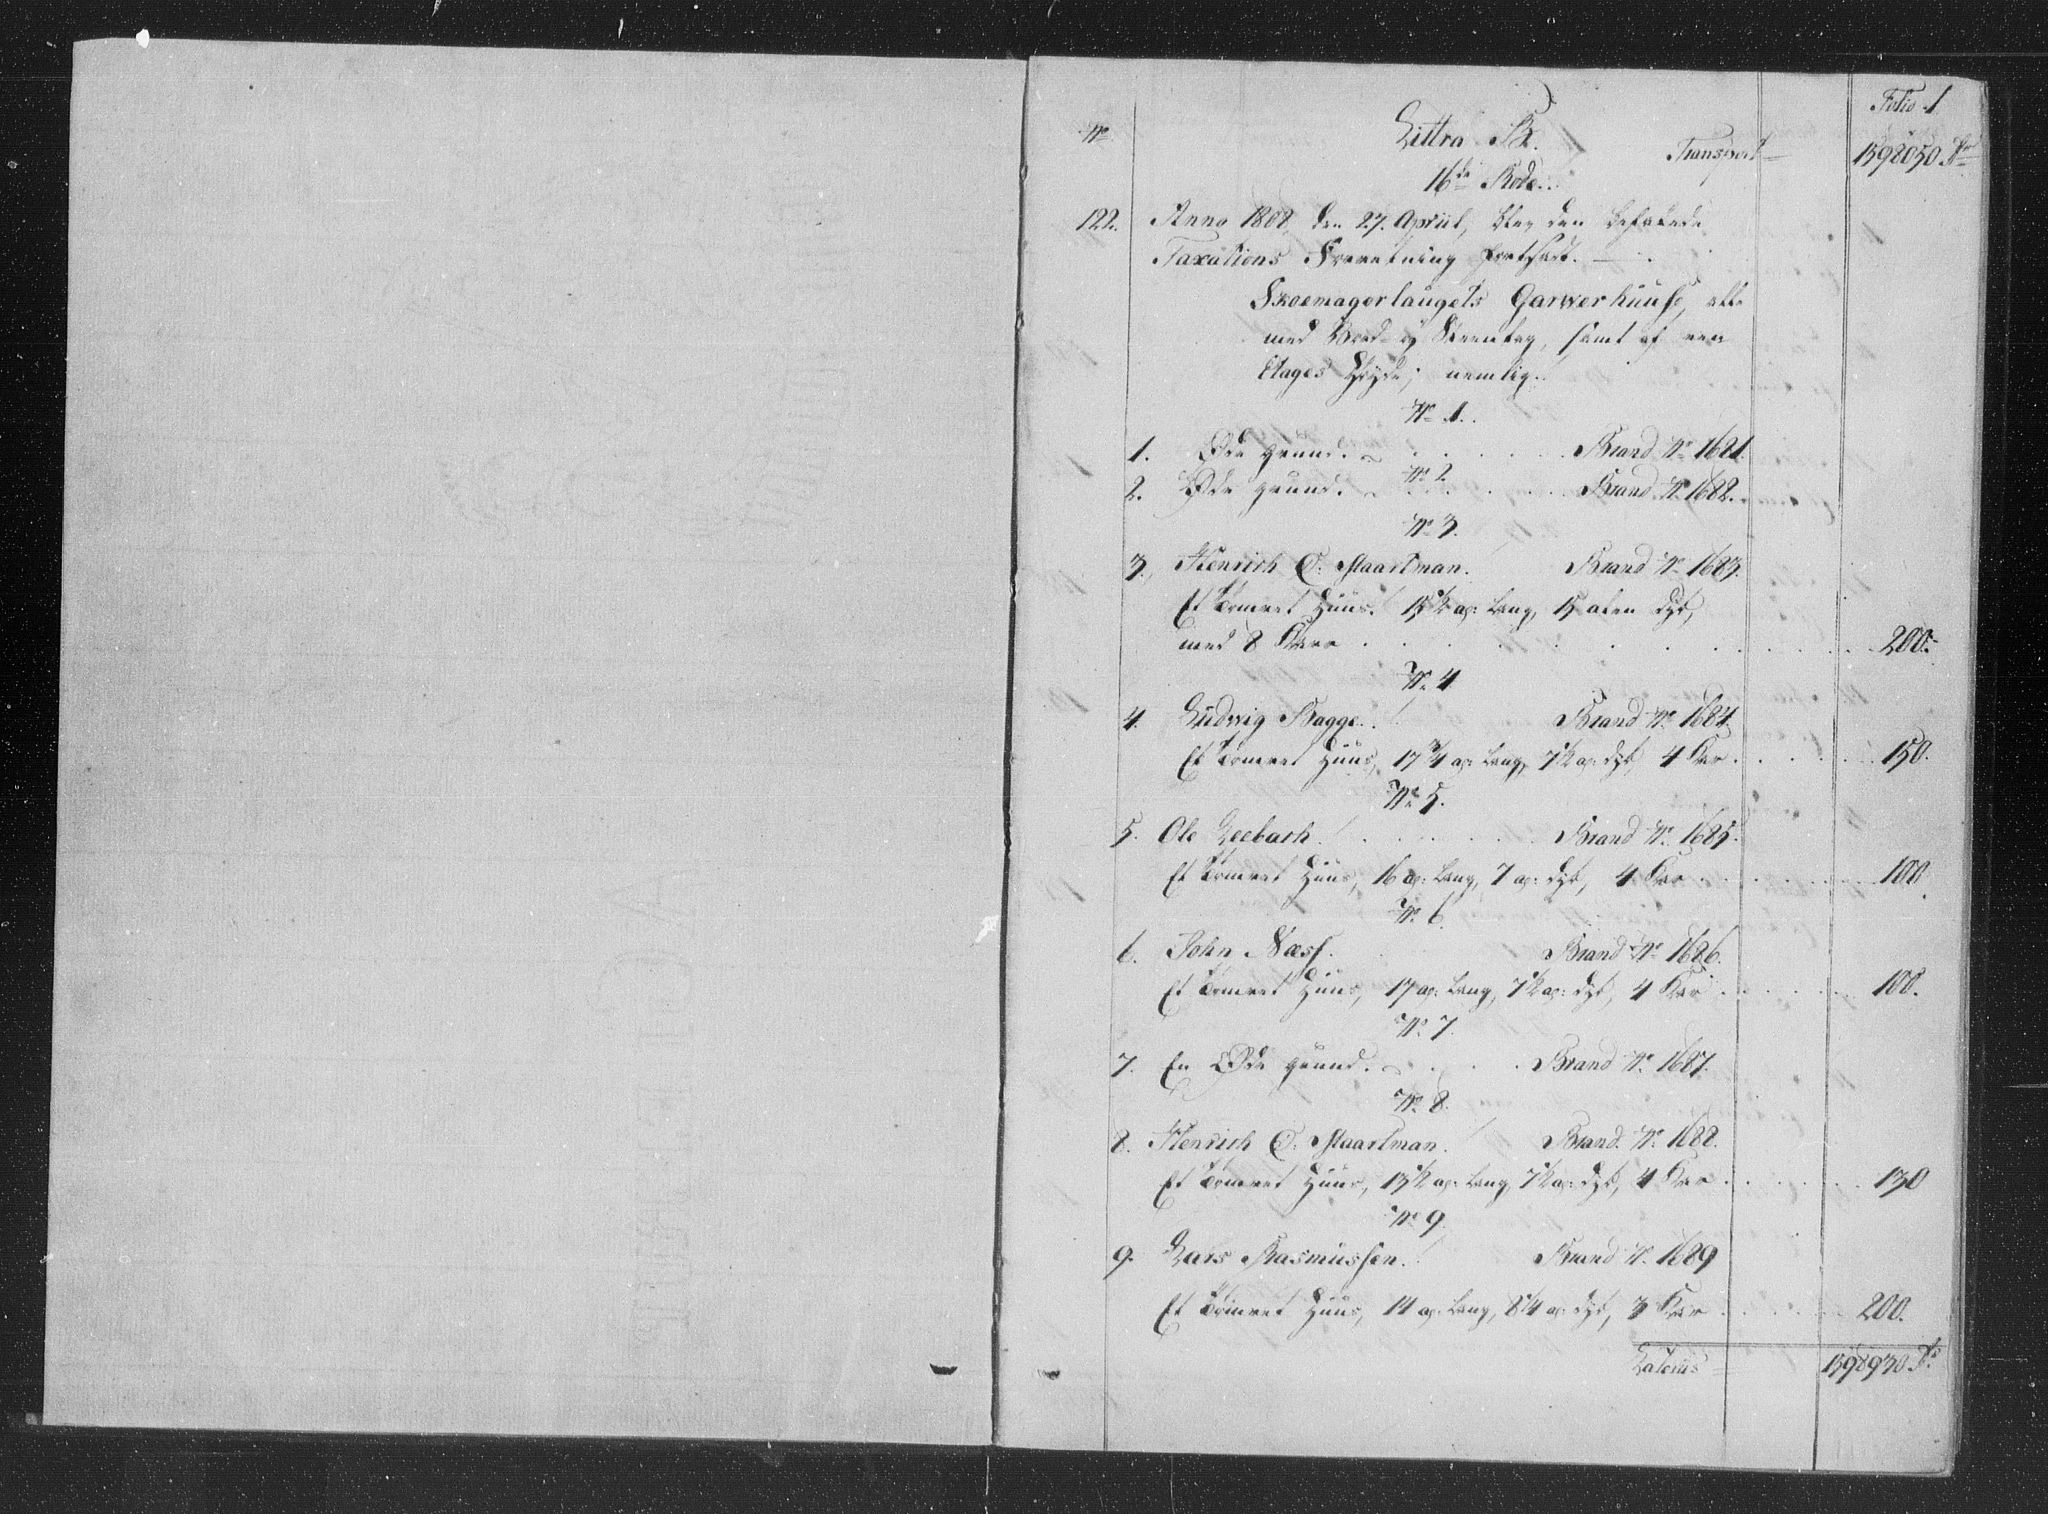 Folio 1
No
Littra B.
Transport — 1598050 Rd
16de Rode.
122. Anno 1808, den 27. Apriil, blev den befalede
Taxations Forretning fortsadt.
Skoemagerlaugets Garverhuuse, alle
med Bord- og Steentag, samt af een
Etages Høyde; nemlig.
No 1.
1. Øde grund. Brand No 1681.
No 2
2. Øde grund. Brand No 1682.
No 3.
3. Henrich C: Staartman. Brand No 1683.
Et Tømret Huus. 15 1/2 al: lang, 15 alen dyb,
med 8 Kar 200.
No 4
4. Ludwig Bagge. Brand No 1684.
Et Tømret Huus, 17 3/4 al: lang, 7 1/2 al: dyb, 4 Kar 150.
No 5.
5. Ole Leebach. Brand No 1685.
Et Tømret Huus, 16 al: lang, 7 al: dyb, 4 Kar 100
No 6
6. John Næss. Brand No 1686.
Et Tømret Huus, 17 al: lang, 7 1/2 al: dyb, 4 Kar 100.
No 7.
7. En Øde grund. Brand No 1687.
No 8.
8. Henrich C: Staartman. Brand No 1688.
Et Tømret Huus, 13 1/2 al: lang, 7 1/2 al: dyb, 4 Kar 130
No 9
9. Lars Rasmussen. Brand No 1689
Et Tømret Huus, 14 al: lang, 8 1/4 al: dyb, 3 Kar 200.
Laterus — 1598930 Rd